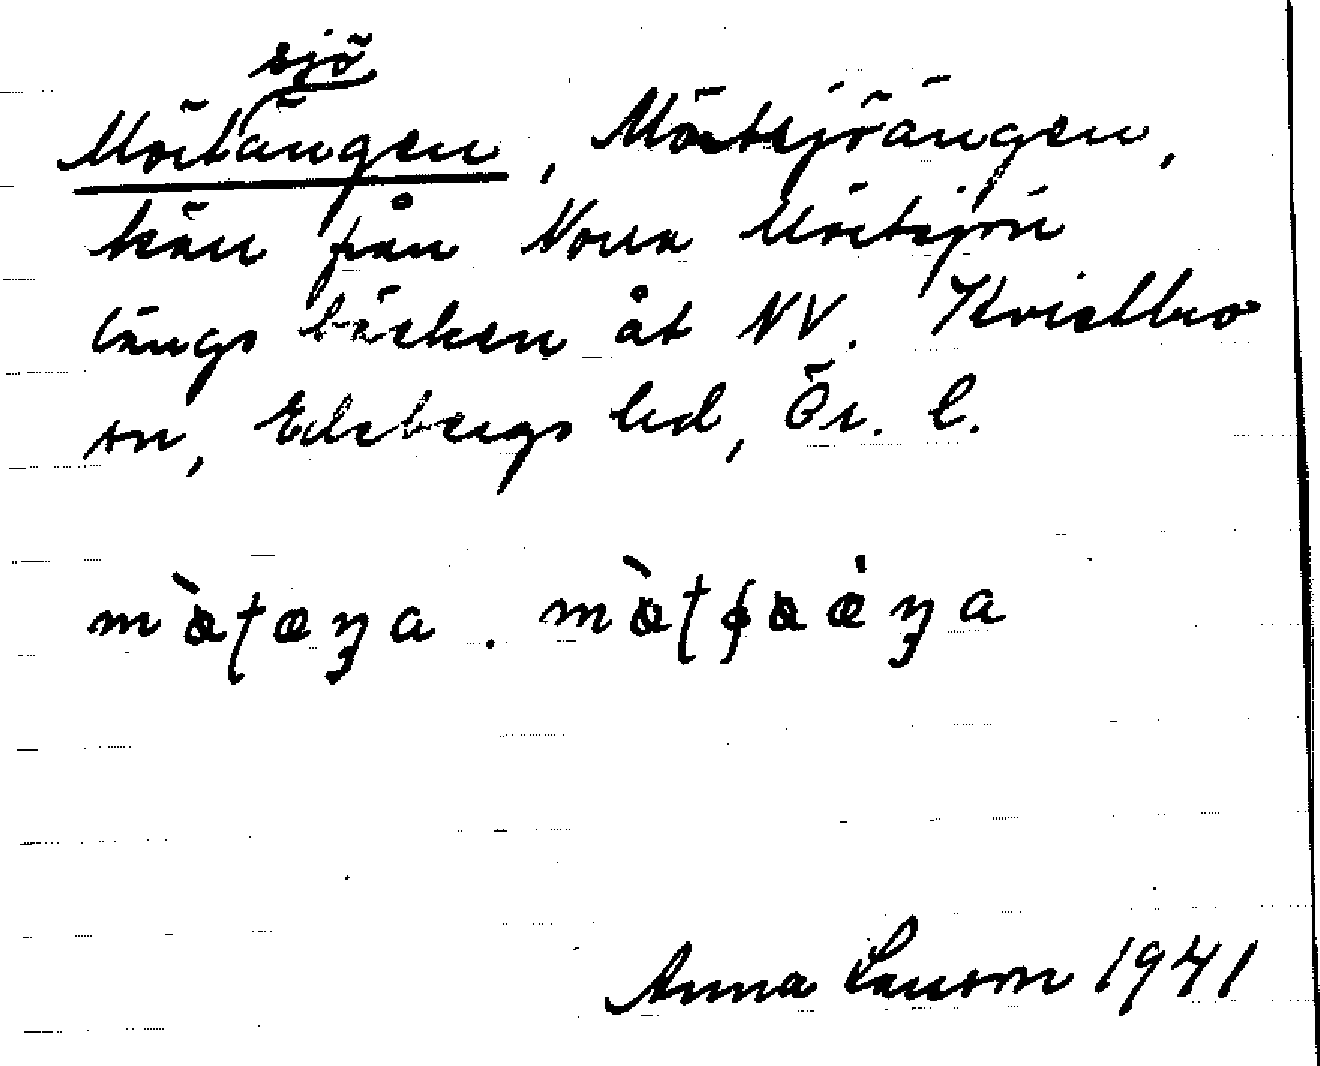 sjö
Mörtängen, Mörtsjöängen,
kärr från Norra Mörtsjön
längs bäcken åt NV. Kvistbro
sn, Edsbergs hd, Ör. l.
Anna Larsson 1941